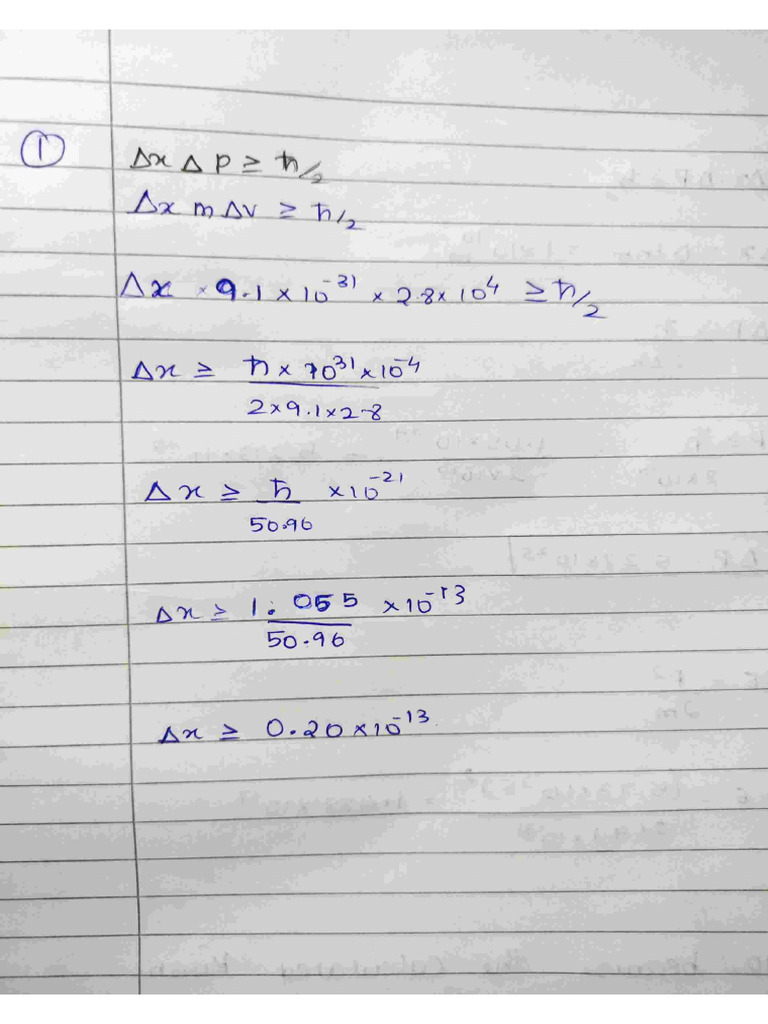 ①
Δx Δ p ≥ ħ/2
Δx m Δv ≥ ħ/2
Δx × 9.1 × 10^-31 × 2.8 × 10^4 ≥ ħ/2
Δx ≥ ħ × 10^31 × 10^-4 / 2×9.1×2.8
Δx ≥ ħ/50.96 × 10^-21
Δx ≥ 1.055/50.96 × 10^-13
Δx ≥ 0.20 × 10^-13